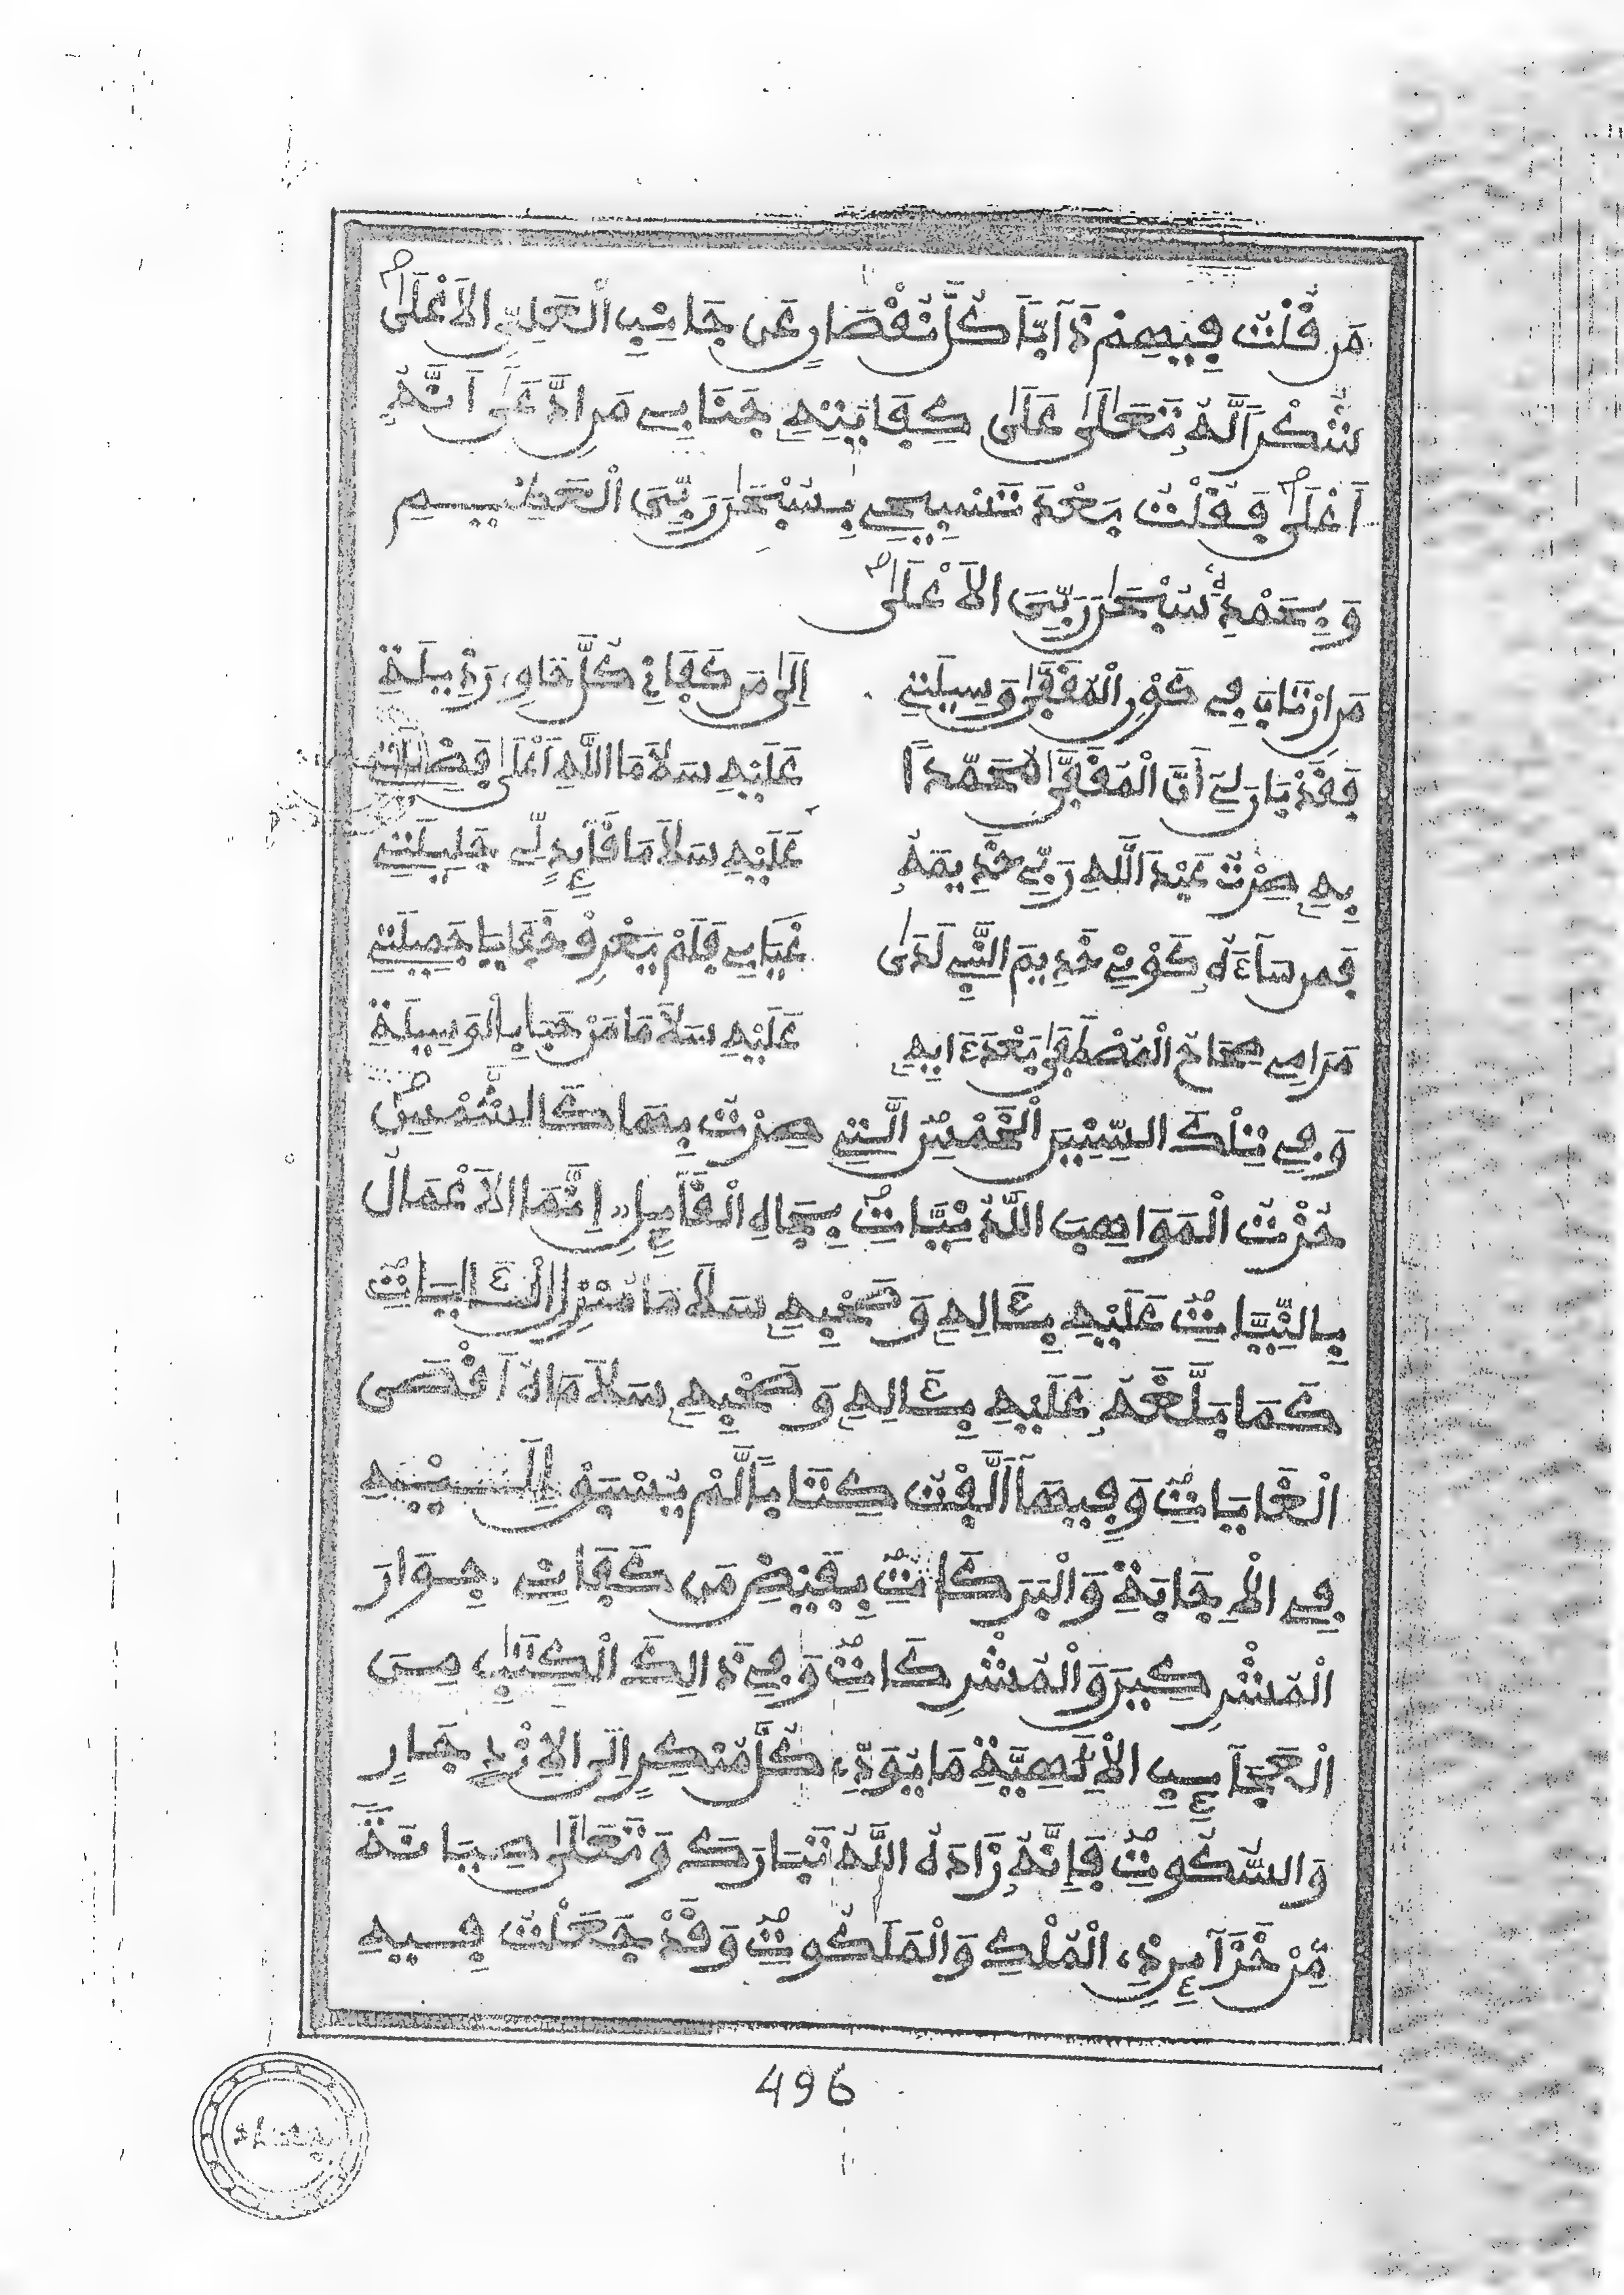 مَن قُلْتُ فِيهِمْ ذَآبًّا كُلَّ نُقْصَانٍ عَن جَانِبِ الْعَلِيِّ الاَعْلَىٰ
شُكْرًا لَّهُ تَعَالَىٰ عَلَىٰ كِفَايَتِهِ جَنَابِي مَنِ ادَّعَىٰ أَنَّهُ
أَعْلَىٰ فَقُلْتُ بَعْدَ تَسْبِيحِي بِسُبْحَٰنَ رَبِّيَ الْعَظِيمِ
وَبِحَمْدِهِ سُبْحَٰنَ رَبِّيَ الاَعْلَىٰ
مَنِ ارْتَابَ فِي كَوْنِ الْمُقَفَّىٰ وَسِيلَتِي إِلَىٰ مَن كَفَانِي كُلَّ غَاوٍ، رَذِيلَةِ
فَقَدْ بَانَ لِي أَنَّ الْمُقَفَّىٰ مُحَمَّدًا عَلَيْهِ سَلاَمَا اللَّهِ أَعْلَىٰ فَضِيلَتِي
بِهِ صِرْتُ عَبْدَ اللَّهِ رَبِّي خَدِيمَهُ عَلَيْهِ سَلاَمَا قَآئِدٍ لِّي جَلِيلَتِي
فَمَن سَآءَهُ كَوْنِي خَدِيمَ النَّبِي لَدَىٰ غِيَابِي فَلَمْ يَعْرِفْ خَفَايَا جَمِيلَتِي
مَرَامِي صِحَاحُ الْمُصْطَفَىٰ بَعْدَ ءَايِهِ عَلَيْهِ سَلاَمَا مَنْ حَبَا بِالْوَسِيلَةِ
وَفِي تِلْكَ السِّنِينَ الْخَمْسِ الَّتِي صِرْتُ بِهَا كَالشَّمْسِ
حُزْتُ الْمَوَاهِبَ اللَّدُنِّيَّاتِ بِجَاهِ الْقَآئِلِ، إِنَّمَا الاَعْمَالُ
بِالنِّيَّاتِ عَلَيْهِ بِـَٔالِهِ وَصَحْبِهِ سَلاَمَا مُنْزِلِ الْـَٔايَاتِ
كَمَا بَلَّغَهُ عَلَيْهِ بِـَٔالِهِ وَصَحْبِهِ سَلاَمَاهُ أَقْصَى
الْغَايَاتِ وَفِيهَآ أَلَّفْتُ كِتَابًا لَّمْ يُسْبَقْ إِلَىٰ شِبْهِهِ
فِي الاِجَابَةِ وَالْبَرَكَاتِ بِفَيْضِ مَن كَفَانِي جِوَارَ
الْمُشْرِكِينَ وَالْمُشْرِكَاتِ وَفِي ذَالِكَ الْكِتَٰبِ مِنَ
الْعَجَآئِبِ الاِلَٰهِيَّةِ مَا يُوَدِّي، كُلَّ مُنْكِرٍ إِلَى الاِزْدِجَارِ
وَالسُّكُوتِ فَإِنَّهُ زَادَهُ اللَّهُ تَبَارَكَ وَتَعَالَىٰ صِيَانَةً
مِّنْ خَزَآئِنِ ذِي، الْمُلْكِ وَالْمَلَكُوتِ وَقَدْ جَعَلْتُ فِيهِ
496